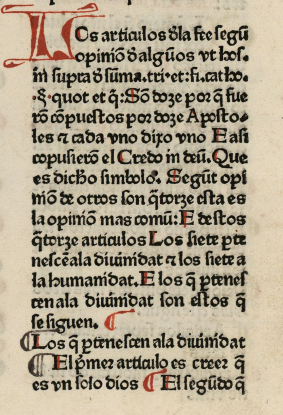 LOs articulos đla fee segũ
opiniõ đalgũos vt hos.
in supra đ sũma.tri.et:fi.catho.
.§.quot et q̃:Sõ doze por q̃ fue
rõ cõpuestos por doze Aposto-
les ⁊ cada vno dixo vno E asi
copusierõ el Credo in deũ.Que
es dicho simbolo. Segũt opi
niõ de otros son q̃torze esta es
la opiniõ mas comũ:E destos
q̃torze articulos Los siete ꝑte
nescẽ ala diuinidat ⁊ los siete a
la humanidat.E los q̃ ꝑtenes
cen ala diuinidat son estos q̃
se siguen. ¶
¶ Los q̃ ꝑtenescen ala diuinidat
¶ El pͥmer articulo es creer q̃
es vn solo dios ¶ El segũdo q̃